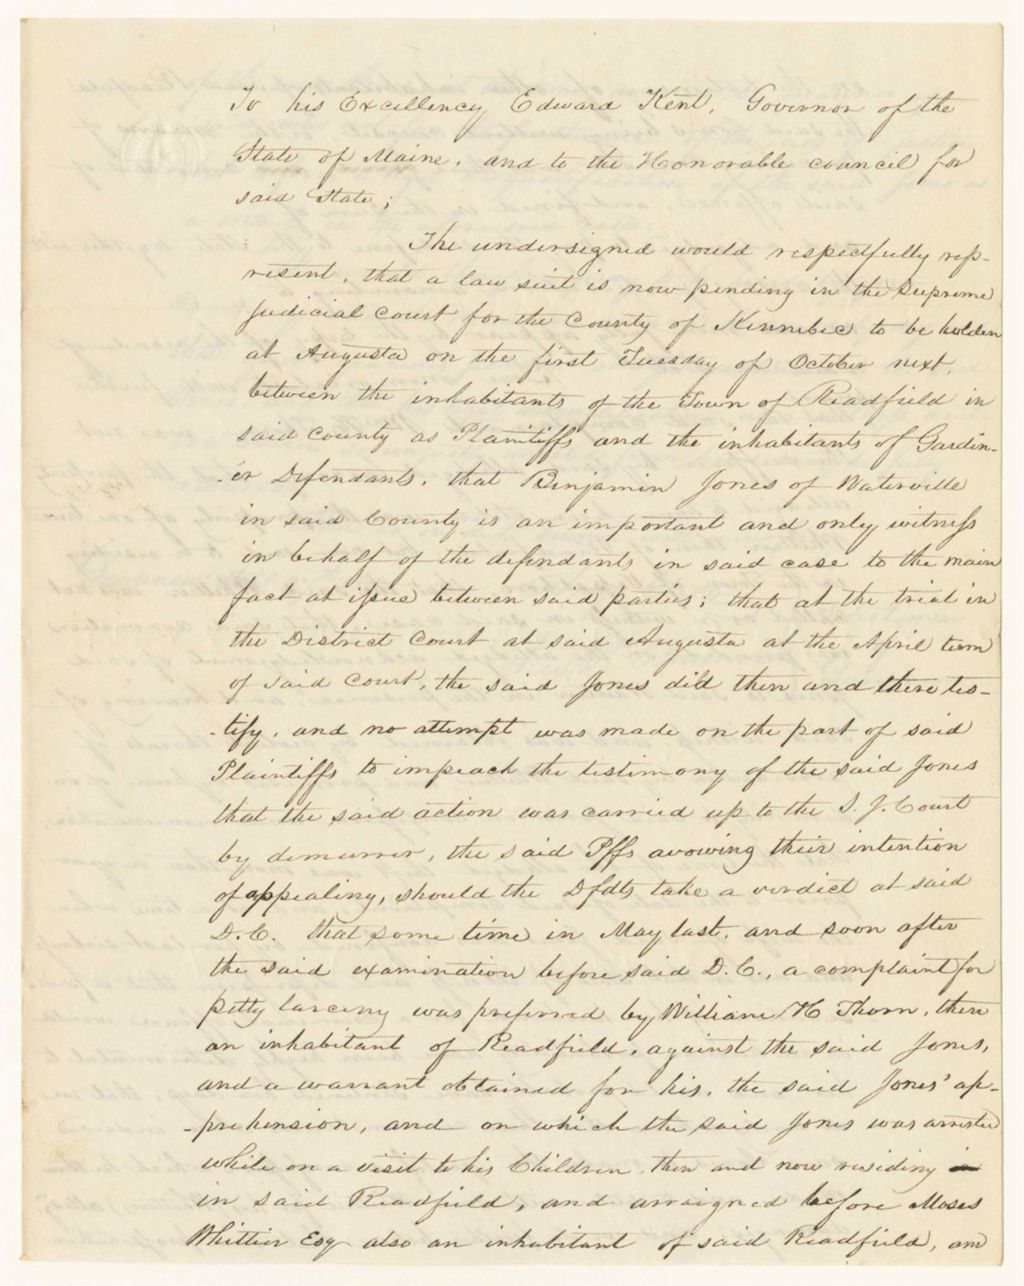 To his Excellency Edward Kent, Governor of the
State of Maine, and to the Honorable council for
said State;
The undersigned would respectfully rep-
resent, that a law suit is now pending in the Supreme
Judicial Court for the County of Kennebec to be holden
at Augusta on the first Tuesday of October next,
between the inhabitants of the Town of Readfield in
said County as Plaintiffs and the inhabitants of Gardin-
-er Defendants, that Benjamin Jones of Waterville
in said County is an important and only witness
in behalf of the defendants in said case to the main
fact at issue between said parties; that at the trial in
the District Court at said Augusta at the April term
of said Court, the said Jones did then and there tes-
-tify, and no attempt was made on the part of said
Plaintiffs to impeach the testimony of the said Jones
that the said action was carried up to the S. J. Court
by demurrer, the said Pffs avowing their intention
of appealing, should the Dfdts take a verdict at said
D.C. that some time in May last, and soon after
the said examination before said D.C., a complaint for
petty larceny was preferred by William H Thorn, then
an inhabitant of Readfield, against the said Jones,
and a warrant obtained for his, the said Jones' ap-
-prehension, and on which the said Jones was arrested
while on a visit to his Children, then and now residing in
in said Readfield, and arraigned before Moses
Whittier Esq also an inhabitant of said Readfield, and